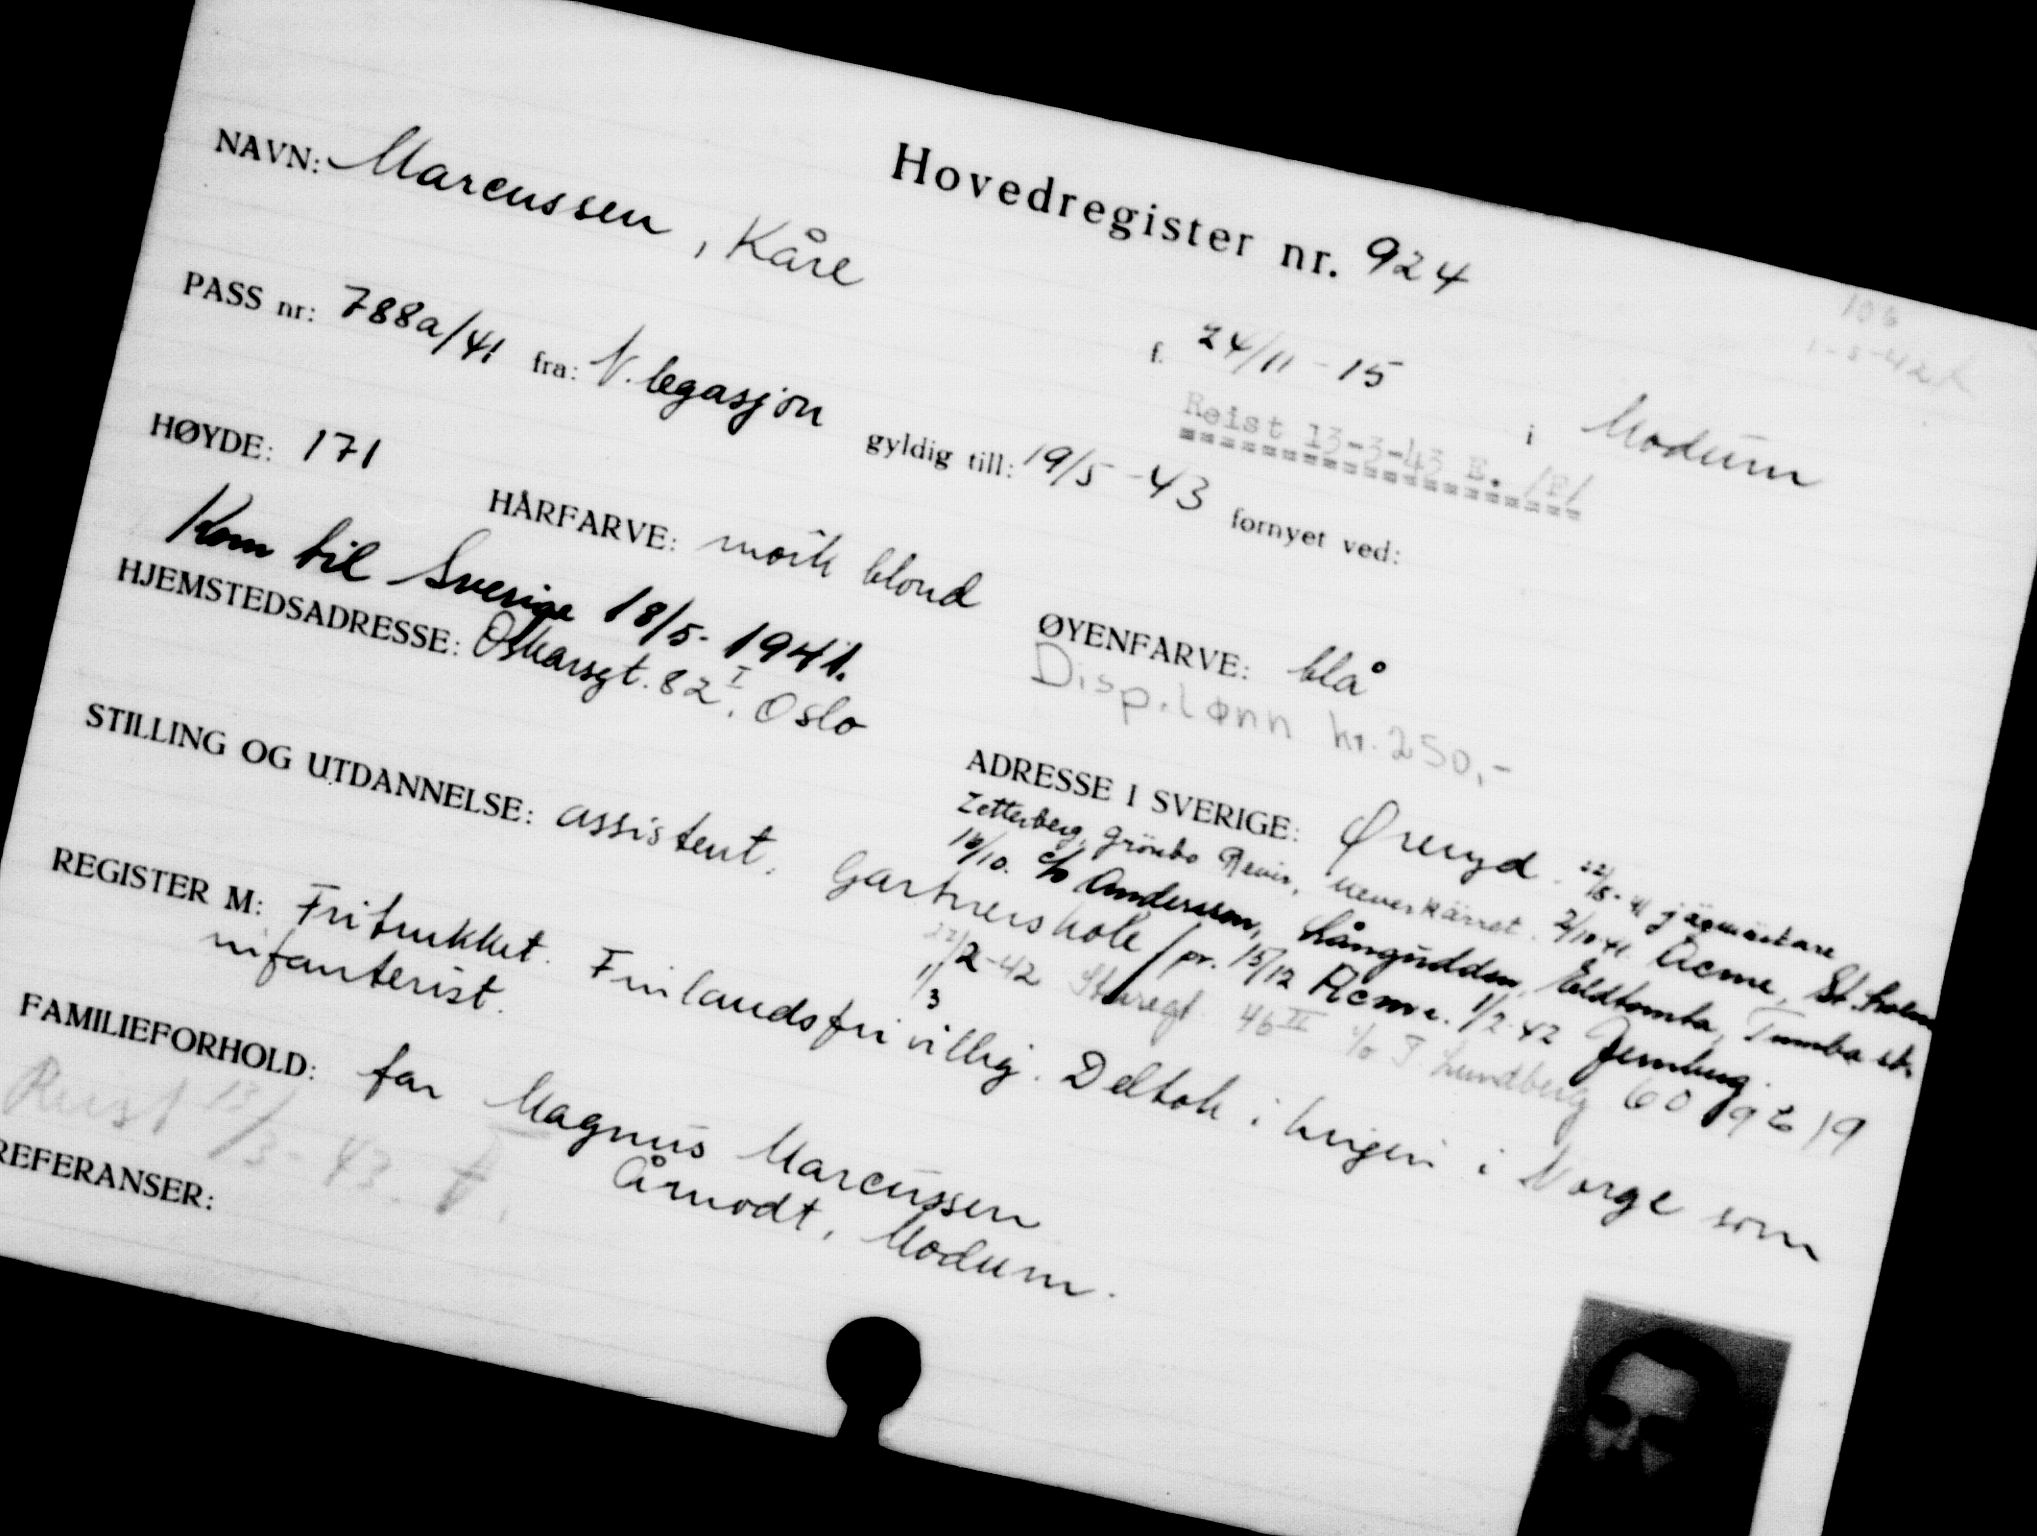 Hovedregister nr. 924
106
1-5-42
NAVN: Marcussen, Kåre f. 24/11-15 i Modum
Reist 13-3-43 E. /P/
PASS nr: 788a/41 fra: N. legasjon gyldig till: 19/5-43 fornyet ved:
HØYDE: 171 HÅRFARVE: mörk blond ØYENFARVE: blå
Kom til Sverige 18/5-1941.
Disp.lønn kr. 250,-
HJEMSTEDSADRESSE: Oskarsgt. 82 I, Oslo ADRESSE I SVERIGE: Øreryd. 22/8-41 jägmästare
Zetterberg, Grönbo Revir, 2/10 41. Acme, St.holm
16/10. c/o Andersson, Långudden, Tumba st.
STILLING OG UTDANNELSE: assistent. Gartnerskole / pr. 15/12 Acme. 1/2 42
22/2-42 Sturegt 46 III c/o Lundberg 60 19
1/3
REGISTER M: Fritrukket. Finlandsfrivillig. Deltok i krigen i Norge som
infanterist.
FAMILIEFORHOLD: far Magnus Marcussen
Åmodt, Modum.
Reist 13/3-43.
REFERANSER: